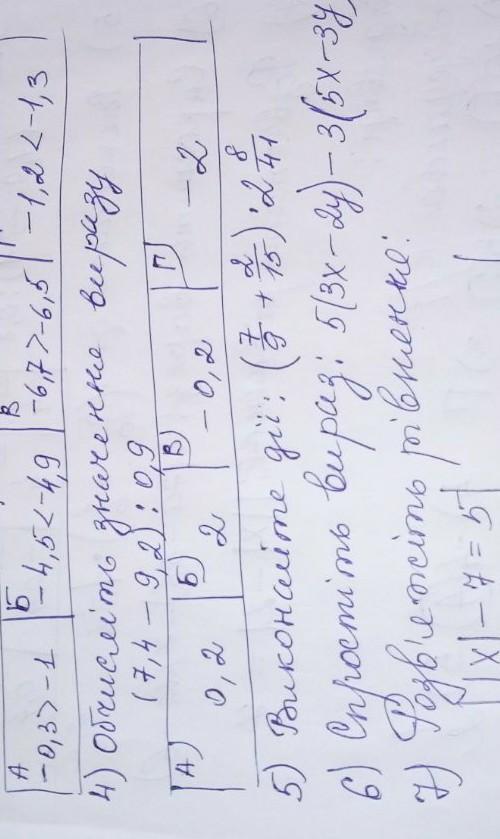 А
-0,3 > -1
Б
-4,5 < -4,9
В
-6,7 > -6,5
Г
-1,2 < -1,3
4) Обчисліть значення виразу
(7,4 - 9,2) : 0,9
А) 0,2 Б) 2 В) -0,2 Г) -2
5) Виконайте дії: (7/9 + 2/15) · 2 8/41
6) Спростіть вираз: 5(3x-2y)-3(5x-3y)
7) Розв'яжіть рівняння:
|x| - 7 = 5